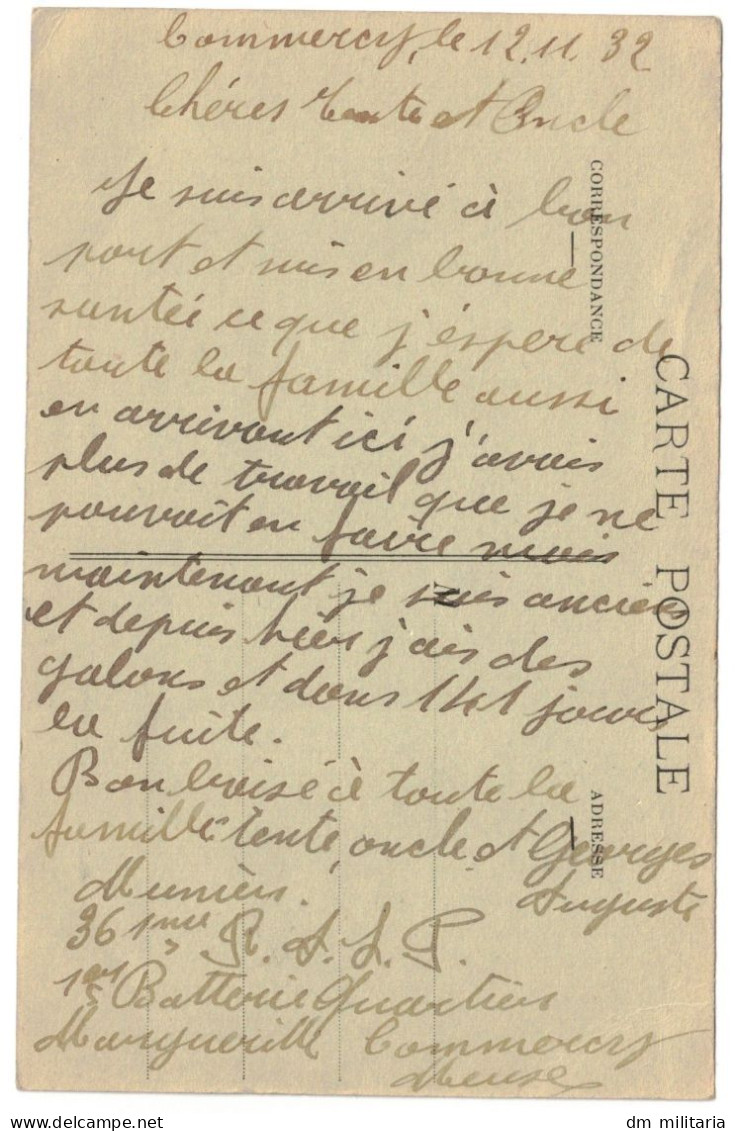 Commercy, le 12.11.32
Chéres tente et Oncle
Je suis arrivé à bon
port et suis en bonne
santée ce que j'éspere de
toute la famille aussi
en arrivant ici j'avais
plus de travail que je ne
pouvait en faire mais
maintenant je suis ancien
et depuis hier j'ais des
galons et dans 141 jours
la fuite.
Bon baisé à toute la
famille tente, oncle et Georges
Auguste
Muniér.
361me R.A.L.P.
1er Batterie Quartier
Margueritte Commercy
Meuse
CORRESPONDANCE
CARTE POSTALE
ADRESSE
dm militaria